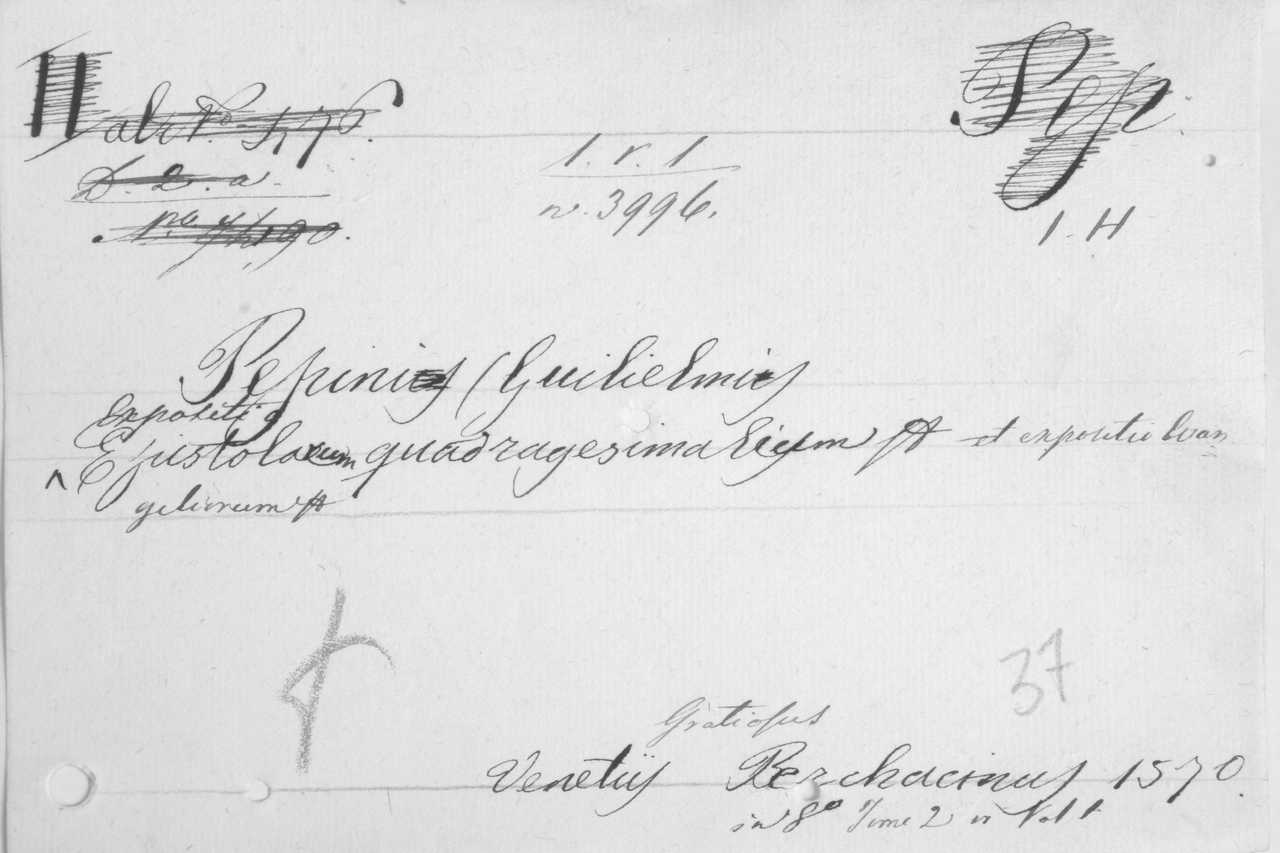 1. r. 1
D. 2. a.
n. 3996.
1. H
Pepinus (Guilielmus
Expositio
Epistolarum quadragesimalium et expositio Evan
geliorum
37
Gratiosus
Venetijs Perchacinus 1570.
in 8º Tomi 2 in Vol 1